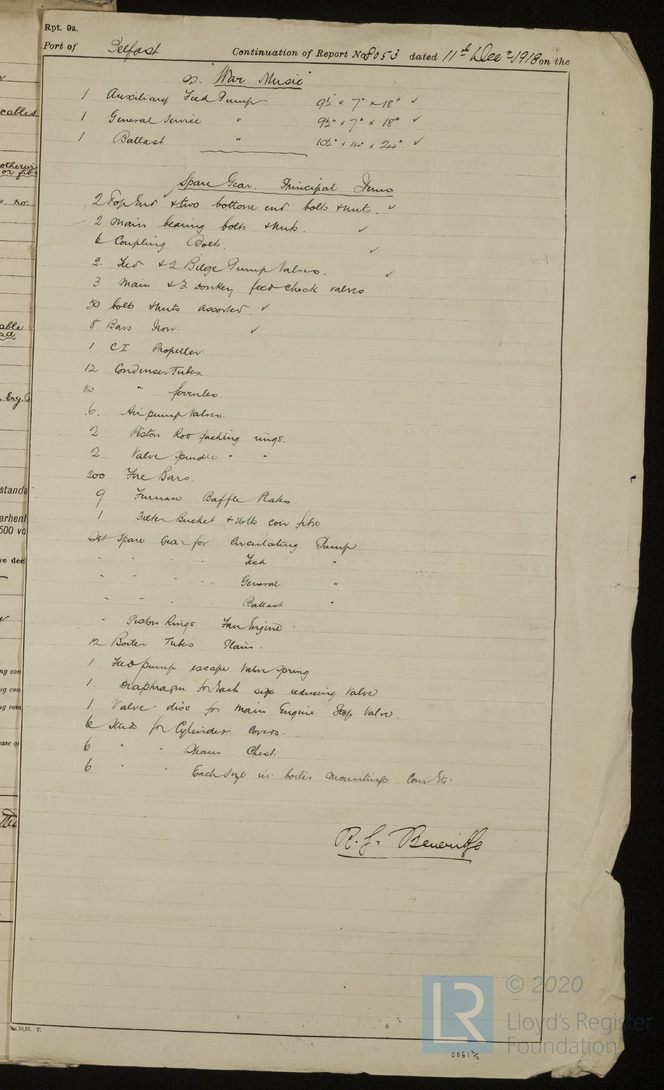 Rpt. 9a.
Port of Belfast Continuation of Report No 8053 dated 11th Decr 1918 on the
ss. "War Music"
1 Auxiliary Feed Pump 9½" x 7" x 18" ✓
1 General Service " 9½" x 7" x 18" ✓
1 Ballast " 10½" x 14" x 24" ✓
Spare Gear. Principal Items
2 Top End & two bottom end bolts & nuts. ✓
2 Main bearing bolts & nuts. ✓
6 Coupling Bolts. ✓
2. Feed & 2 Bilge Pump Valves. ✓
3 Main & 3 Donkey feed check valves
50 bolts & nuts assorted. ✓
8 Bars Iron ✓
1 C.I. Propeller
12 Condenser Tubes.
50 " ferrules.
6. Air pump Valves.
2 Piston Rod packing rings.
2 Valve spindle " "
200 Fire Bars.
9 Furnace Baffle Plates
1 Filter Bucket & coir fibre
Set Spare Gear for Circulating Pump
" " " " Feed "
" " " " General "
" " " " Ballast "
" Piston Rings Fan Engine.
12 Boiler Tubes Plain.
1 Feed pump escape valve spring
1. Diaphragm for each size reducing Valve
1 Valve disc for Main Engine Stop Valve.
6 Studs for Cylinder Covers.
6 " " Steam Chest.
6 " " Each size in boiler mountings Etc.
R. J. Beveridge
© 2020
LR
Lloyd's Register
Foundation
0061½